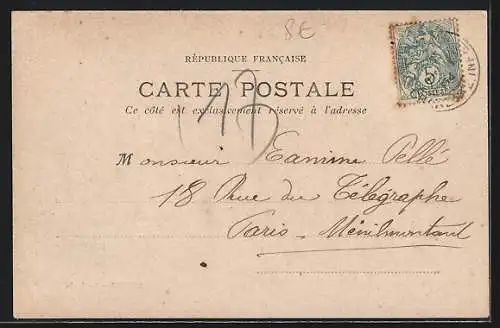 8E
RÉPUBLIQUE FRANÇAISE
CARTE POSTALE
Ce côté est exclusivement réservé à l'adresse
(17)
Monsieur Pellé
18 Rue du Télégraphe
Paris - Ménilmontant
5